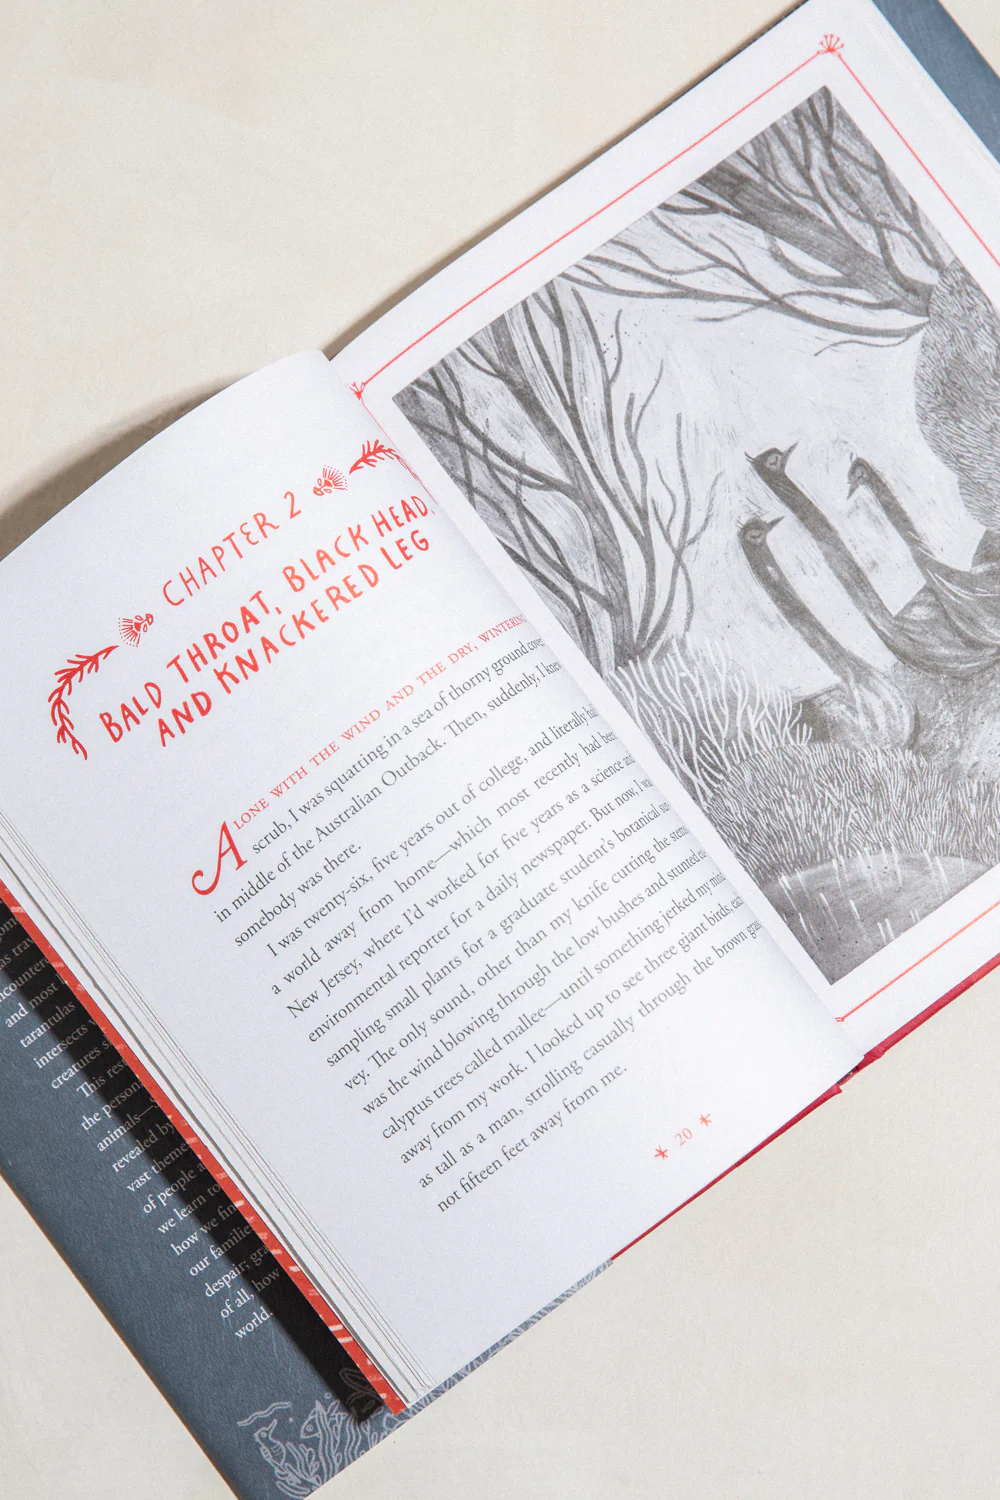 CHAPTER 2
BALD THROAT, BLACK HEAD,
AND KNACKERED LEG
ALONE WITH THE WIND AND THE DRY, WINTERING
scrub, I was squatting in a sea of thorny ground cover
in middle of the Australian Outback. Then, suddenly, I knew
somebody was there.
I was twenty-six, five years out of college, and literally half
a world away from home—which most recently had been
New Jersey, where I'd worked for five years as a science and
environmental reporter for a daily newspaper. But now, I was
sampling small plants for a graduate student's botanical sur-
vey. The only sound, other than my knife cutting the stems,
was the wind blowing through the low bushes and stunted eu-
calyptus trees called mallee—until something jerked my mind
away from my work. I looked up to see three giant birds, each
as tall as a man, strolling casually through the brown grass
not fifteen feet away from me.
20
and most
tarantulas
intersects
creatures
This
the
animals—
revealed by
vast
of people
we learn to
how we
our
despair;
of all, how
world.